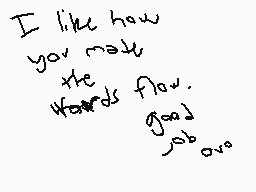 I like how
you made
the
words flow.
good
job ovo